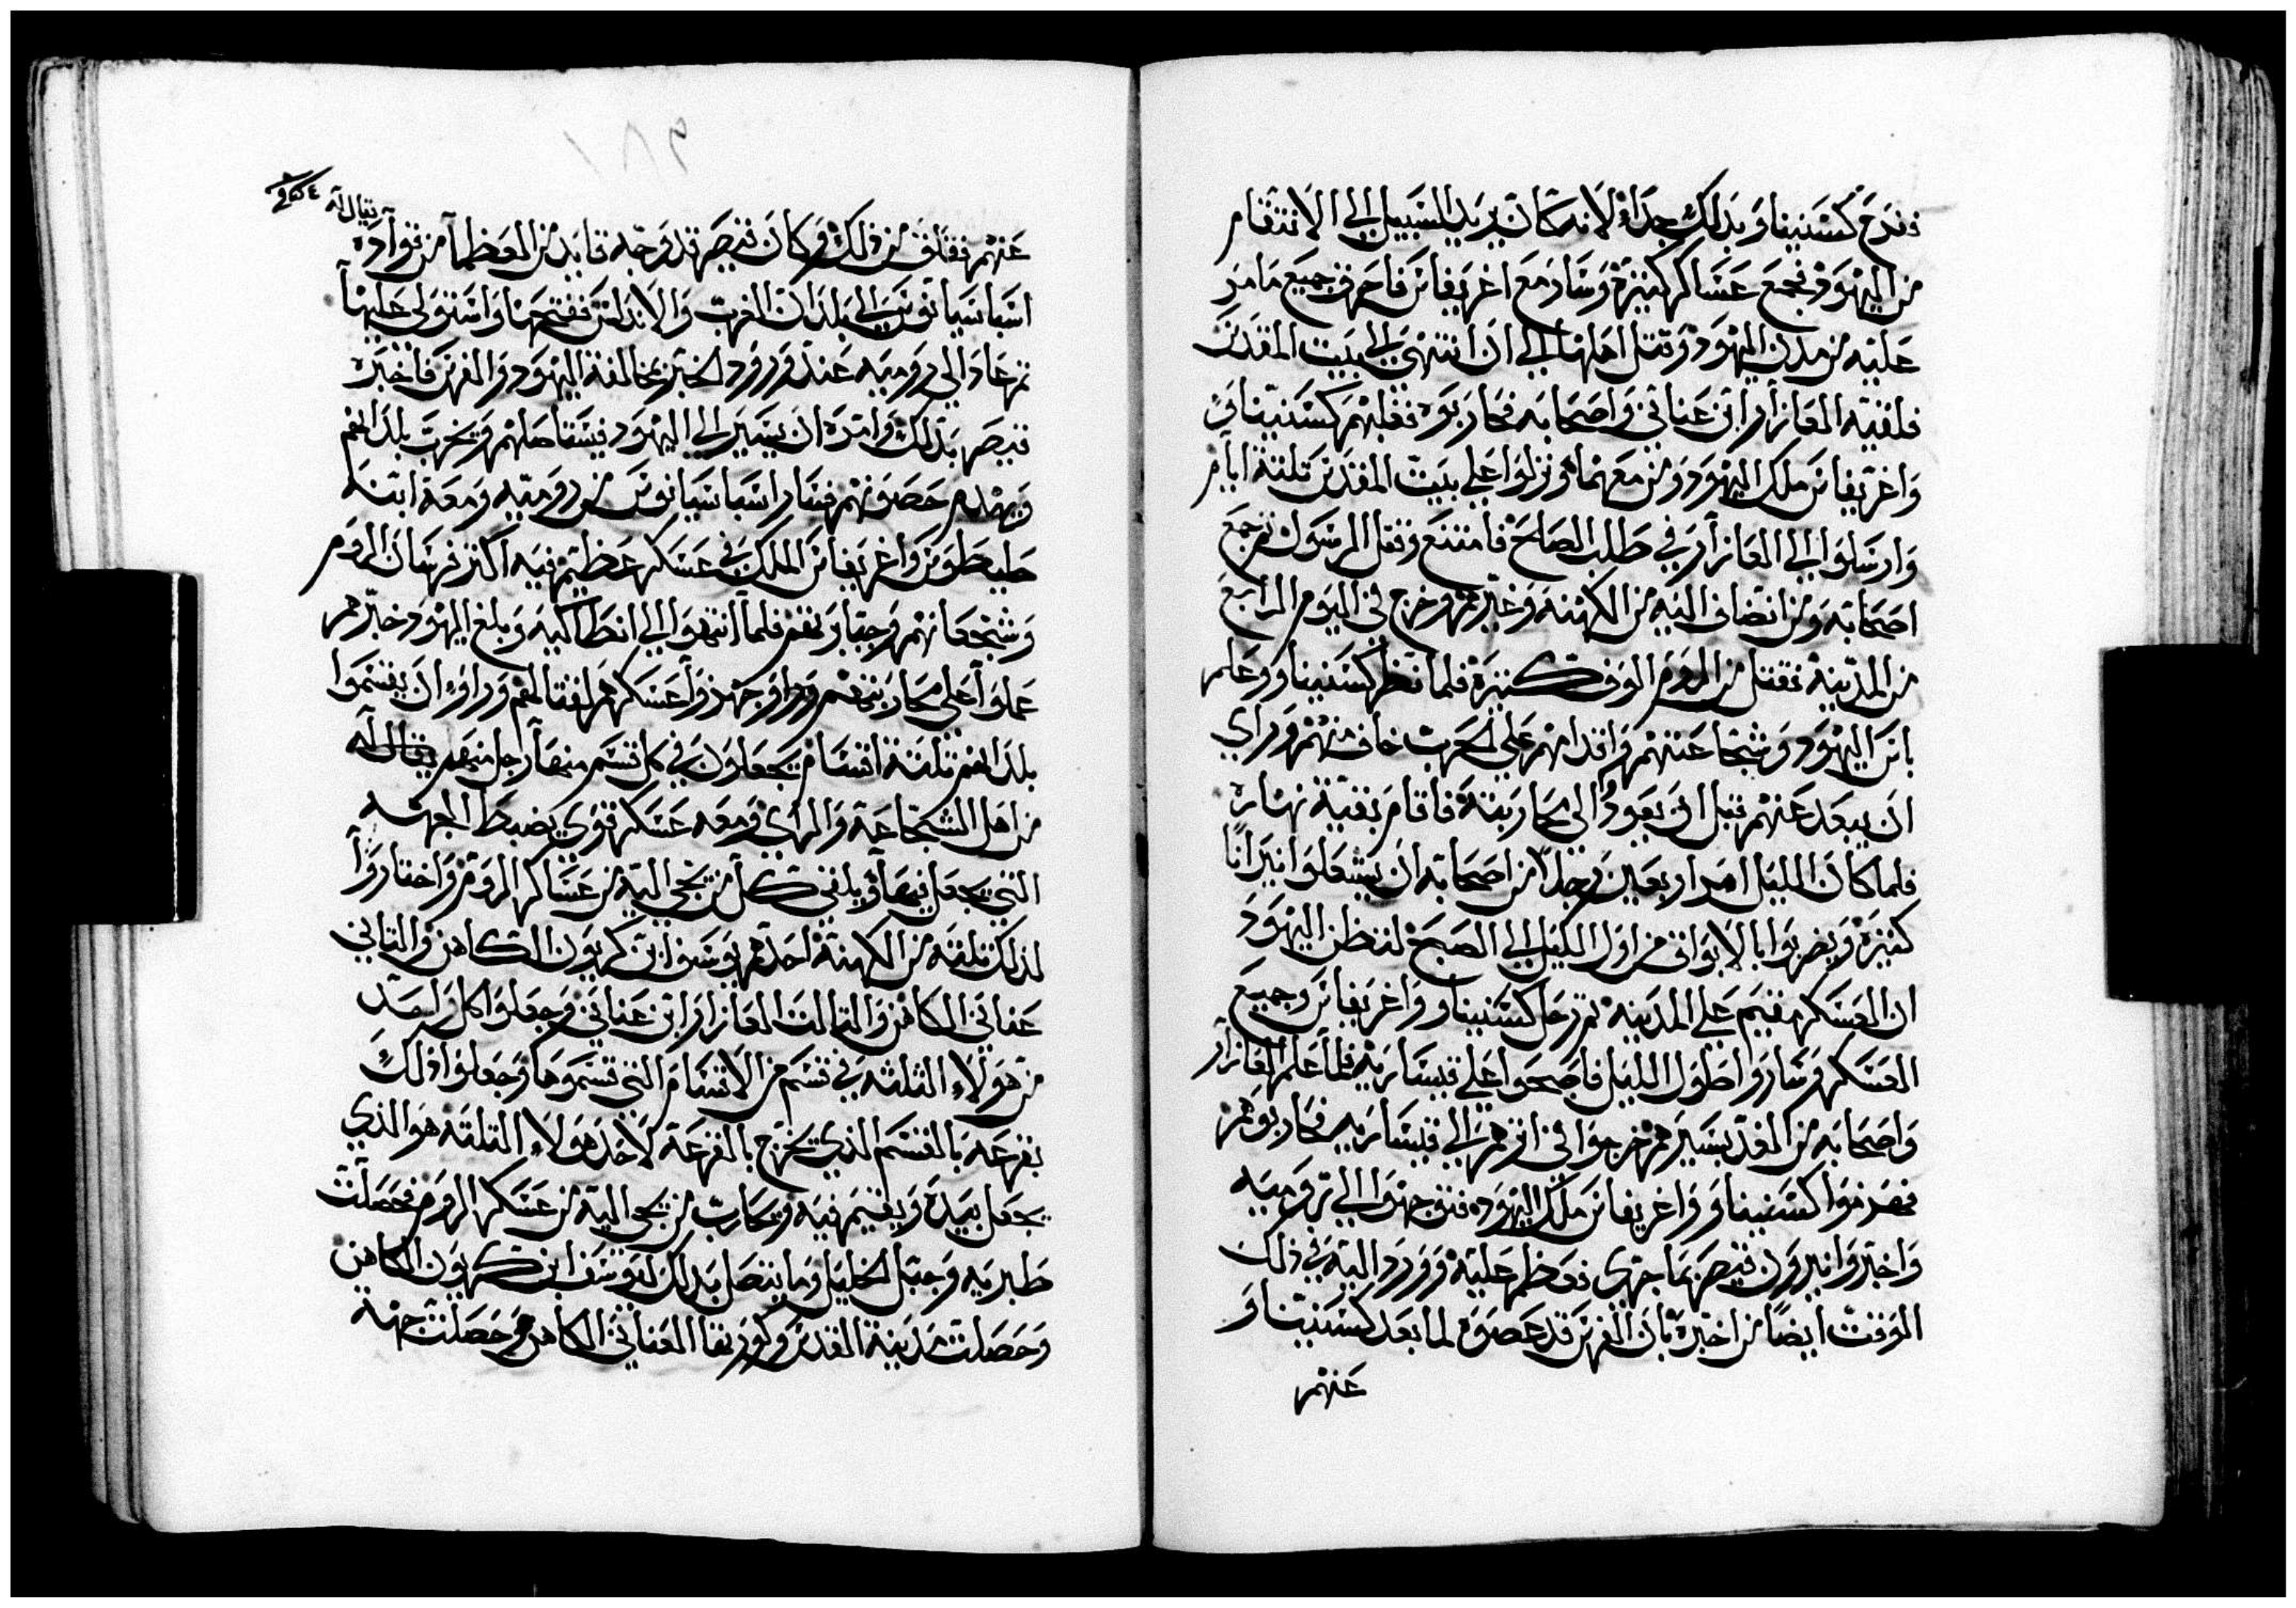 ففرح كسنيناو بذلك جدا لانه كان يريد السبيل الى الانتقام
من اليهود فجمع عساكر كثيرة وسار مع اغريفاس فاحرق جميع ما مر
عليه من مدن اليهود وقتل اهلها الي ان انتهى الى بيت المقدس
فلقيه العازار ابن عناني واصحابه فحاربوه فغلبهم كسنيناو
واغريفاس ملك اليهود ومن معهما ونزلوا علي بيت المقدس ثلثة ايام
وارسلوا الي العازار في طلب الصلح فامتنع وقتل الرسول ثم جمع
اصحابه ومن انضاف اليه من الكهنة وغيرهم وخرج في اليوم الرابع
من المدينة فقتل من الروم الوف كثيرة فلما نظر كسنيناو وعلم
باس اليهود وشجاعتهم واقدامهم علي الحرب خاف منهم وراي
ان يبعد عنهم قبل ان يعود الى محاربته فاقام بقية نهاره
فلما كان الليل امر اربعين رجلا من اصحابه ان يشعلوا نيرانا
كثيرة ويضربوا بالابواق من اول الليل الي الصبح لتظن اليهود
ان العسكر مقيم علي المدينه ثم رحل كسنيناو واغريفاس وجميع
العسكر وساروا طول الليل فاصبحوا علي قيساريه فلما علم العازار
واصحابه من الغد بسيرهم خرجوا في اثرهم الي قيساريه فحاربوهم
فهزموا كسنيناو واغريفاس ملك اليهود فتوجهوا الي روميه
واخبروا نيرون قيصر بما جرى فعظم عليه وورد اليه في ذلك
الوقت ايضا من اخبره بان الفرس قد عصوه لما بعد كسنيناو
عنهم
يقال له
عنهم فقلق من ذلك وكان قيصر قد وجه قايد من العظما من قواده
اسباسيانوس الى بلدان الغرب والاندلس ففتحها واستولي عليها
ثم عاد الي روميه عند ورود الخبر بمخالفة اليهود والفرس فاخبره
قيصر بذلك وامره ان يسير الي اليهود فيستاصلهم ويخرب بلدانهم
ويهدم حصونهم فسار اسباسيانوس من روميه ومعه ابنه
طيطوس واغريفاس الملك في عسكر عظيم فيه اكثر فرسان الروم
وشجعانهم وجبابرتهم فلما انتهوا الي انطاكيه وبلغ اليهود خبرهم
عملوا علي محاربتهم وجهزوا عسكرهم لقتالهم وراوا ان يقسموا
بلدانهم ثلثة اقسام يجعلون في كل قسم منها رجل منهم يقال له
من اهل الشجاعة والراى ومعه عسكر قوي يضبط الجهه
التي يجعل فيها ويلقي كل من يجي اليه من عساكر الروم واختاروا
لذلك ثلثه من الكهنة احدهم يوسف ابن كريون الكاهن والثاني
عناني الكاهن والثالث العازار ابن عناني وجعلوا كل واحد
من هولاء الثلثه في قسم من الاقسام التي قسموها وجعلوا ذلك
بقرعه بالقسم الذي يخرج بالقرعة لاحد هولاء الثلثه هو الذي
يجعل بيده ويقيم فيه ويحارب من يجي اليه من عسكر الروم فحصلت
طبريه وجبل الخليل وما يتصل بذلك ليوسف ابن كريون الكاهن
وحصلت مدينة القدس وكورتها لعناني الكاهن وحصلت جهة